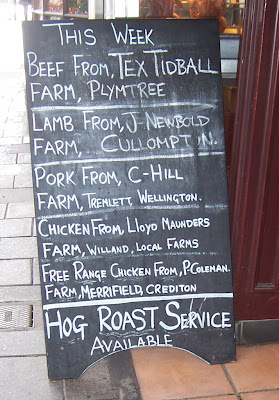 THIS WEEK
BEEF FROM, TEX TIDBALL
FARM, PLYMTREE
LAMB FROM, J NEWBOLD
FARM, CULLOMPTIN.
PORK FROM, C-HILL
FARM, TREMLETT, WELLINGTON.
CHICKEN FROM, LLOYD MAUNDERS
FARM, WILLAND, LOCAL FARMS
FREE RANGE CHICKEN FROM, P.COLEMAN.
FARM, MERRIFIELD, CREDITON
HOG ROAST SERVICE
AVAILABLE